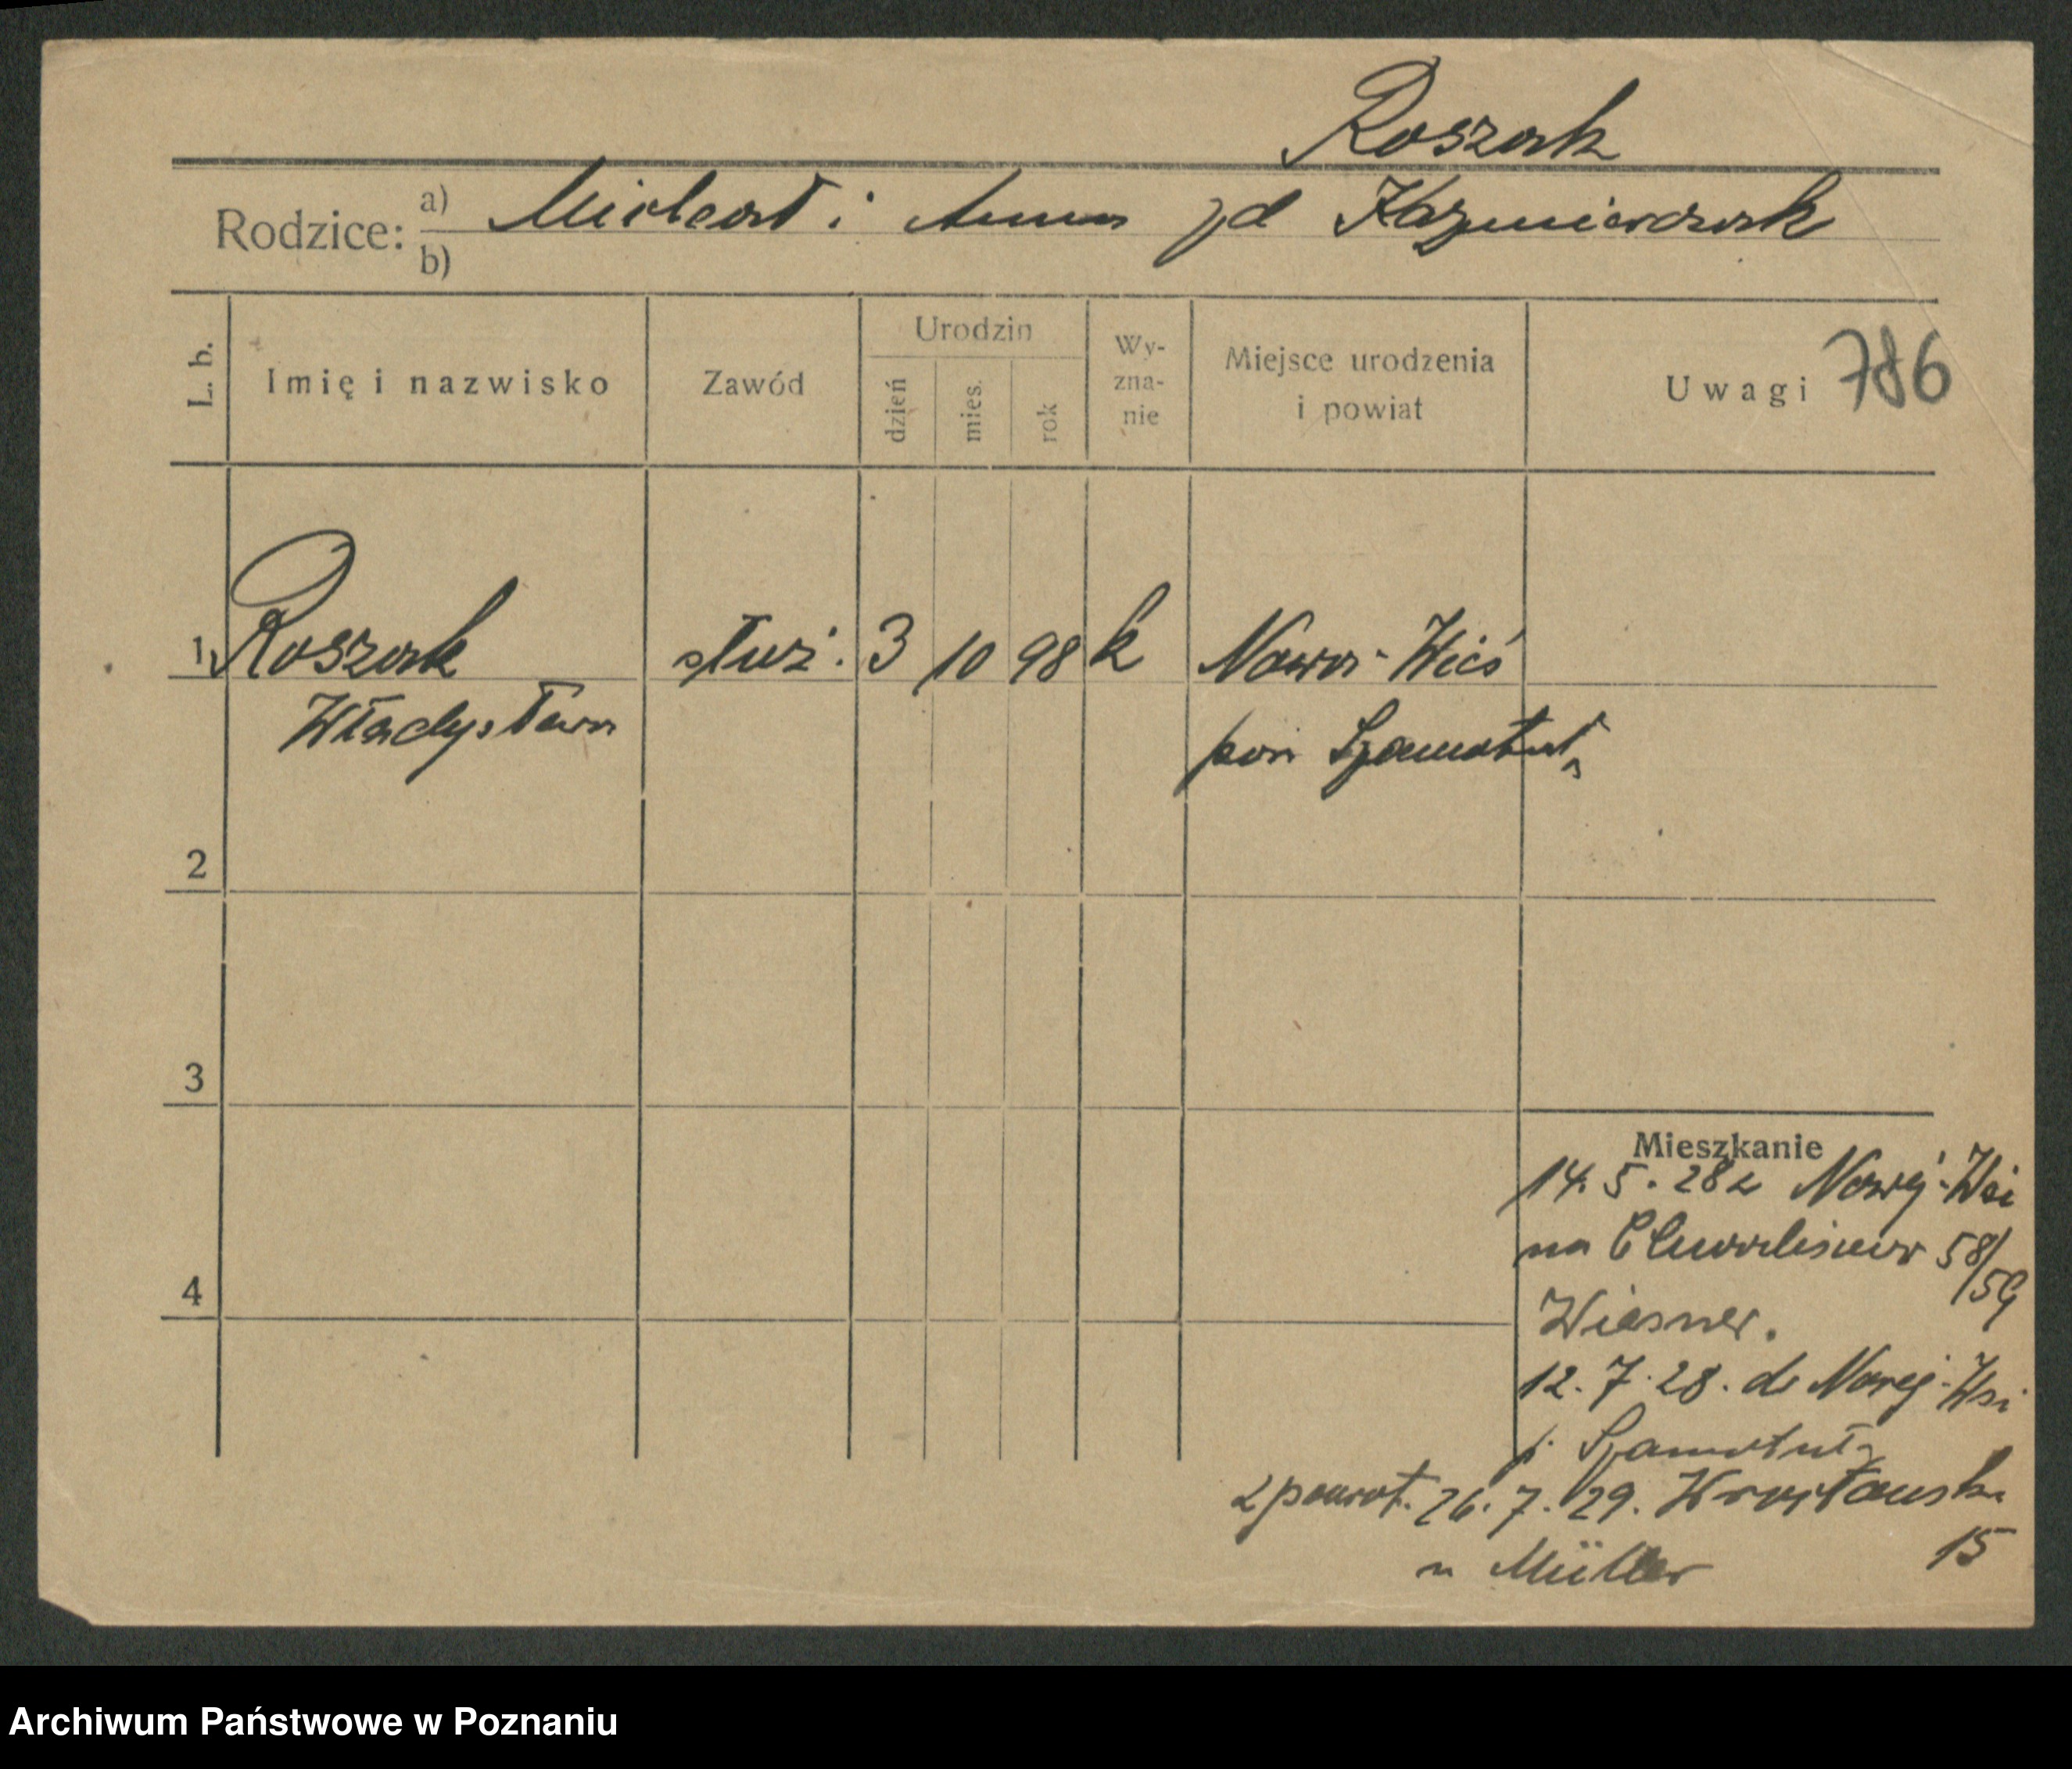 Roszak
Rodzice: a) Michał i Anna zd Kaźmierczak
b)
L. b. Imię i nazwisko Zawód Urodzin dzień mies. rok Wy-zna-nie Miejsce urodzenia i powiat Uwagi 786
1 Roszak służ. 3 10 98 k Nowa-Wieś
Władysława pow Szamotuł
2
3
4
Mieszkanie
14.5.28 z Nowej-Wsi
na Chwaliszewo 58/59
Wiesner.
12.7.28. do Nowej-Wsi
p. Szamotuł
z powrot. 26.7.29. Wrocławska
15
u Müller
Archiwum Państwowe w Poznaniu